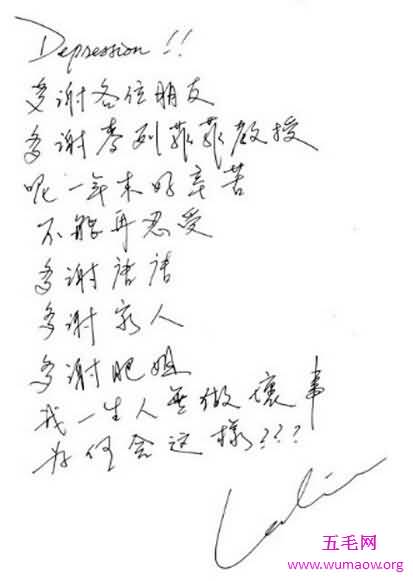 Depression!!
多谢各位朋友
多谢李列菲菲教授
呢一年来好辛苦
不能再忍受
多谢唐唐
多谢家人
多谢肥姐
我一生人无做壞事
为何会这樣???
Leslie
五毛网
www.wumaow.org